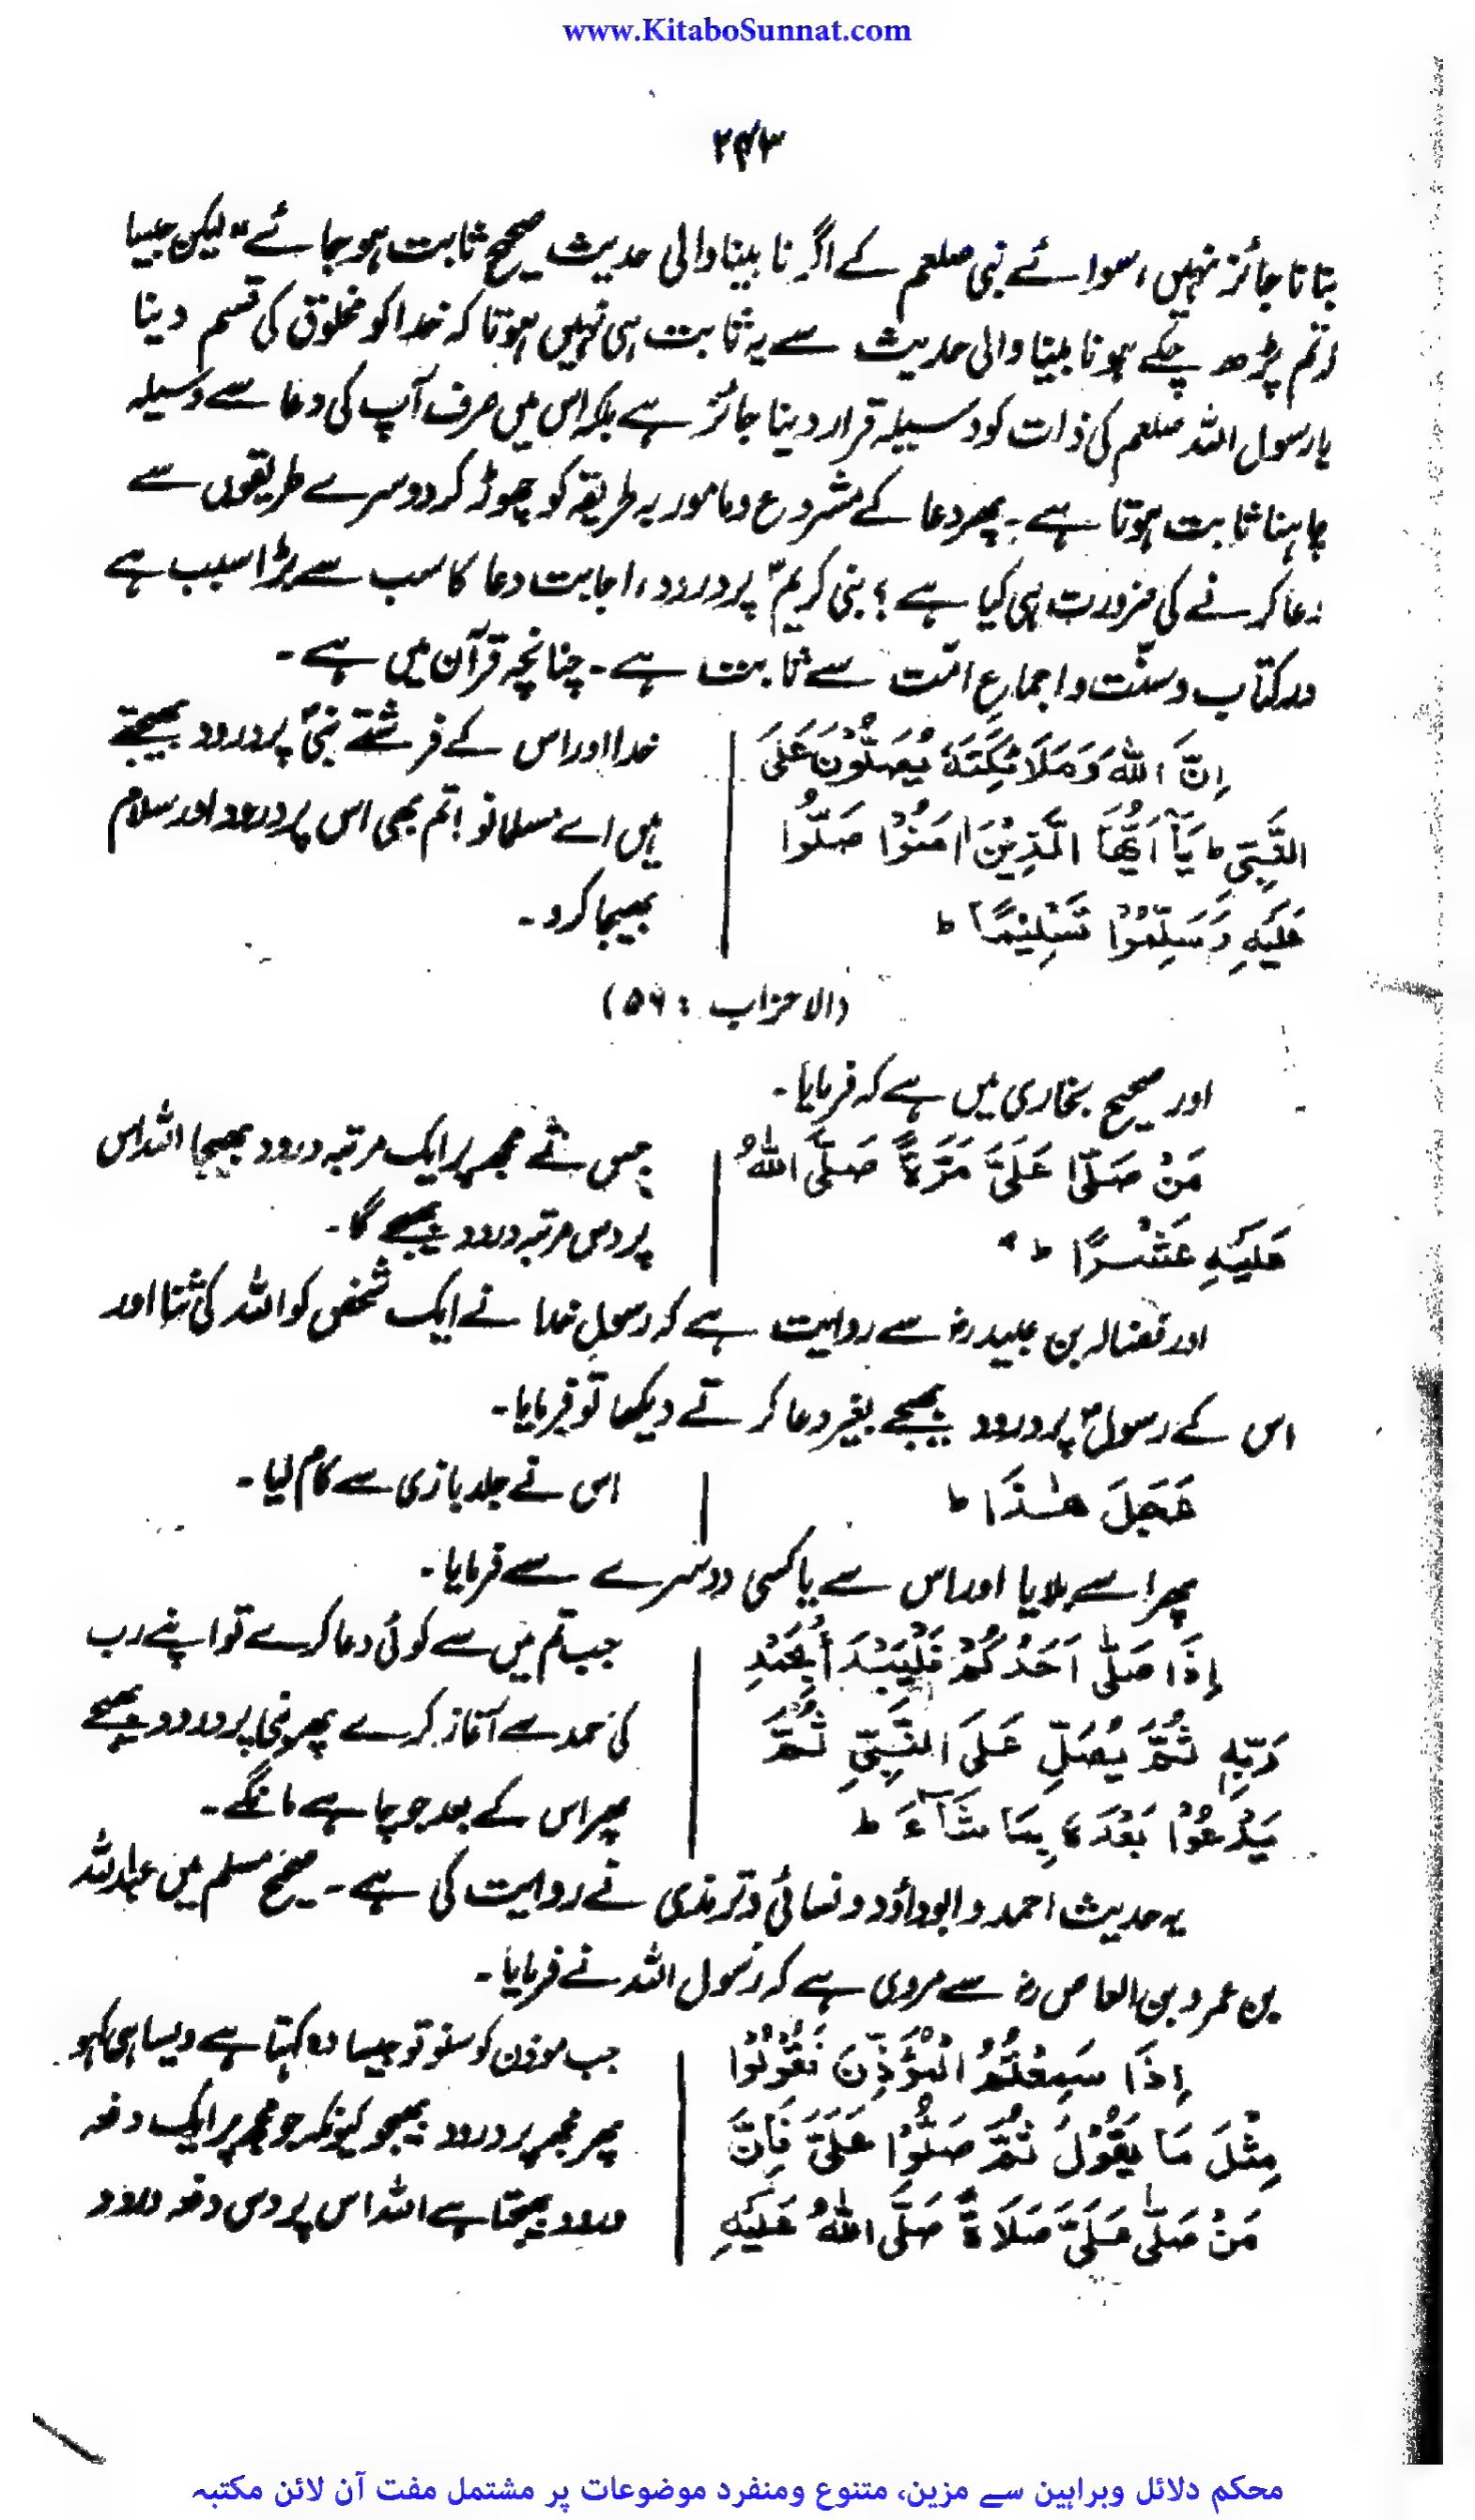 www.KitaboSunnat.com
۲۴۳
بتانا جائز نہیں، سوائے نبی صلعم کے اگر نابینا والی حدیث صحیح ثابت ہو جائے" لیکن جیسا
تم پڑھ چکے ہو نابینا والی حدیث سے یہ ثابت ہی نہیں ہوتا کہ خدا کو مخلوق کی قسم دینا
یا رسول اللہ صلعم کی ذات کو وسیلہ قرار دینا جائز ہے بلکہ اس میں صرف آپ کی دعا سے وسیلہ
چاہنا ثابت ہوتا ہے۔ پھر دعا کے مشروع و مامور بہ طریقہ کو چھوڑ کر دوسرے طریقوں سے
دعا کرنے کی ضرورت ہی کیا ہے؟ نبی کریمؐ پر درود، اجابت دعا کا سب سے بڑا سبب ہے
در کتاب و سنت و اجماع امت سے ثابت ہے۔ چنانچہ قرآن میں ہے۔
اِنَّ اللهَ وَمَلَائِكَتَهٗ يُصَلُّوْنَ عَلَى
النَّبِيِّ ط يَآ اَيُّهَا الَّذِيْنَ اٰمَنُوْا صَلُّوا
عَلَيْهِ وَسَلِّمُوْا تَسْلِيْمًا ط
خدا اور اس کے فرشتے نبیؐ پر درود بھیجتے
ہیں اے مسلمانو! تم بھی اس پر درود اور سلام
بھیجا کرو۔
(الاحزاب : ۵۶)
اور صحیح بخاری میں ہے کہ فرمایا۔
مَنْ صَلّٰى عَلَيَّ مَرَّةً صَلَّى اللهُ
عَلَيْهِ عَشْرًا ط
جس نے مجھ پر ایک مرتبہ درود بھیجا اللہ اس
پر دس مرتبہ درود بھیجے گا۔
اور فضالہ بن عبید رضہ سے روایت ہے کہ رسول خدا نے ایک شخص کو اللہ کی ثنا اور
اس کے رسولؐ پر درود بھیجے بغیر دعا کرتے دیکھا تو فرمایا۔
عَجَلَ هٰذَا ط
اس نے جلد بازی سے کام لیا۔
پھر اسے بلایا اور اس سے یا کسی دوسرے سے فرمایا۔
اِذَا صَلّٰى اَحَدُكُمْ فَلْيَبْدَأْ بِحَمْدِ
رَبِّهٖ ثُمَّ يُصَلِّ عَلَى النَّبِيِّ ثُمَّ
يَدْعُوْا بَعْدَهٗ بِمَا شَآءَ ط
جب تم میں سے کوئی دعا کرے تو اپنے رب
کی حمد سے آغاز کرے پھر نبی پر درود بھیجے
پھر اس کے بعد جو چاہے مانگے۔
یہ حدیث احمد و ابوداؤد و نسائی و ترمذی نے روایت کی ہے۔ صحیح مسلم میں عبداللہ
بن عمرو بن العاص رضہ سے مروی ہے کہ رسول اللہ نے فرمایا۔
اِذَا سَمِعْتُمُ الْمُؤَذِّنَ فَقُوْلُوْا
مِثْلَ مَا يَقُوْلُ ثُمَّ صَلُّوْا عَلَيَّ فَاِنَّ
مَنْ صَلّٰى عَلَيَّ صَلَاةً صَلَّى اللهُ عَلَيْهِ
جب موذن کو سنو تو جیسا وہ کہتا ہے ویسا ہی کہو
پھر مجھ پر درود بھیجو کیونکہ جو مجھ پر ایک دفعہ
درود بھیجتا ہے اللہ اس پر دس دفعہ درود
محکم دلائل وبراہین سے مزین، متنوع ومنفرد موضوعات پر مشتمل مفت آن لائن مکتبہ